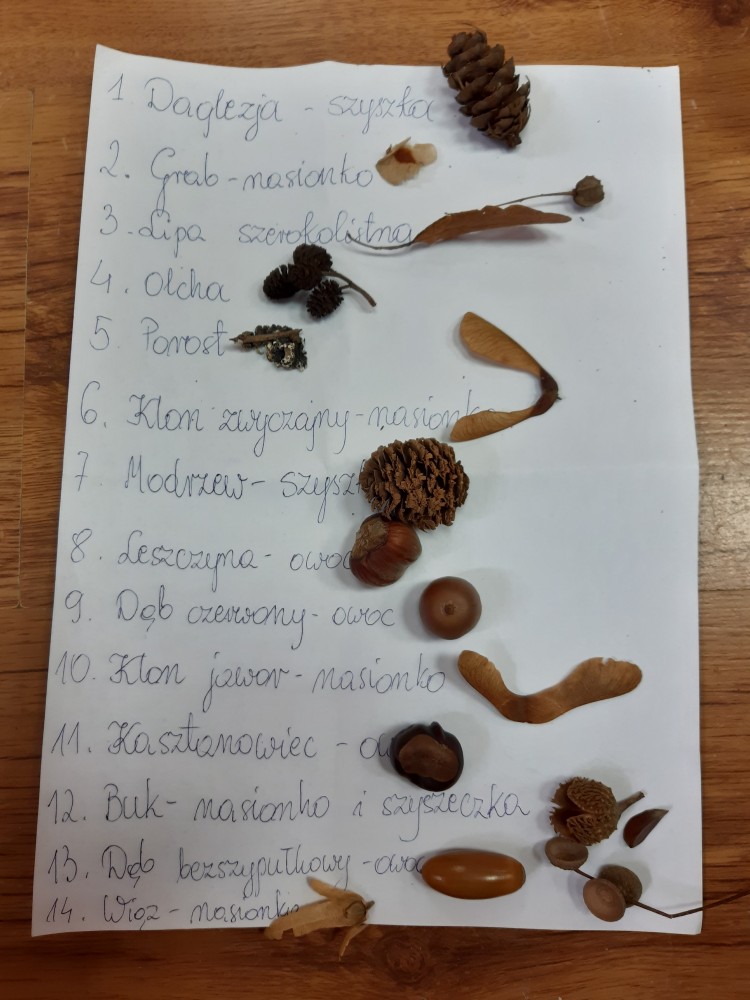 1 Daglezja - szyszka
2. Grab - nasionko
3. Lipa szerokolistna
4. Olcha
5. Porost
6. Klon zwyczajny - nasionk
7 Modrzew - szyszk
8. Leszczyna - owoc
9. Dąb czerwony - owoc
10. Klon jawor - nasionko
11. Kasztanowiec - ow
12. Buk - nasionko i szyszeczka
13. Dąb bezszypułkowy - owoc
14. Wiąz - nasionka